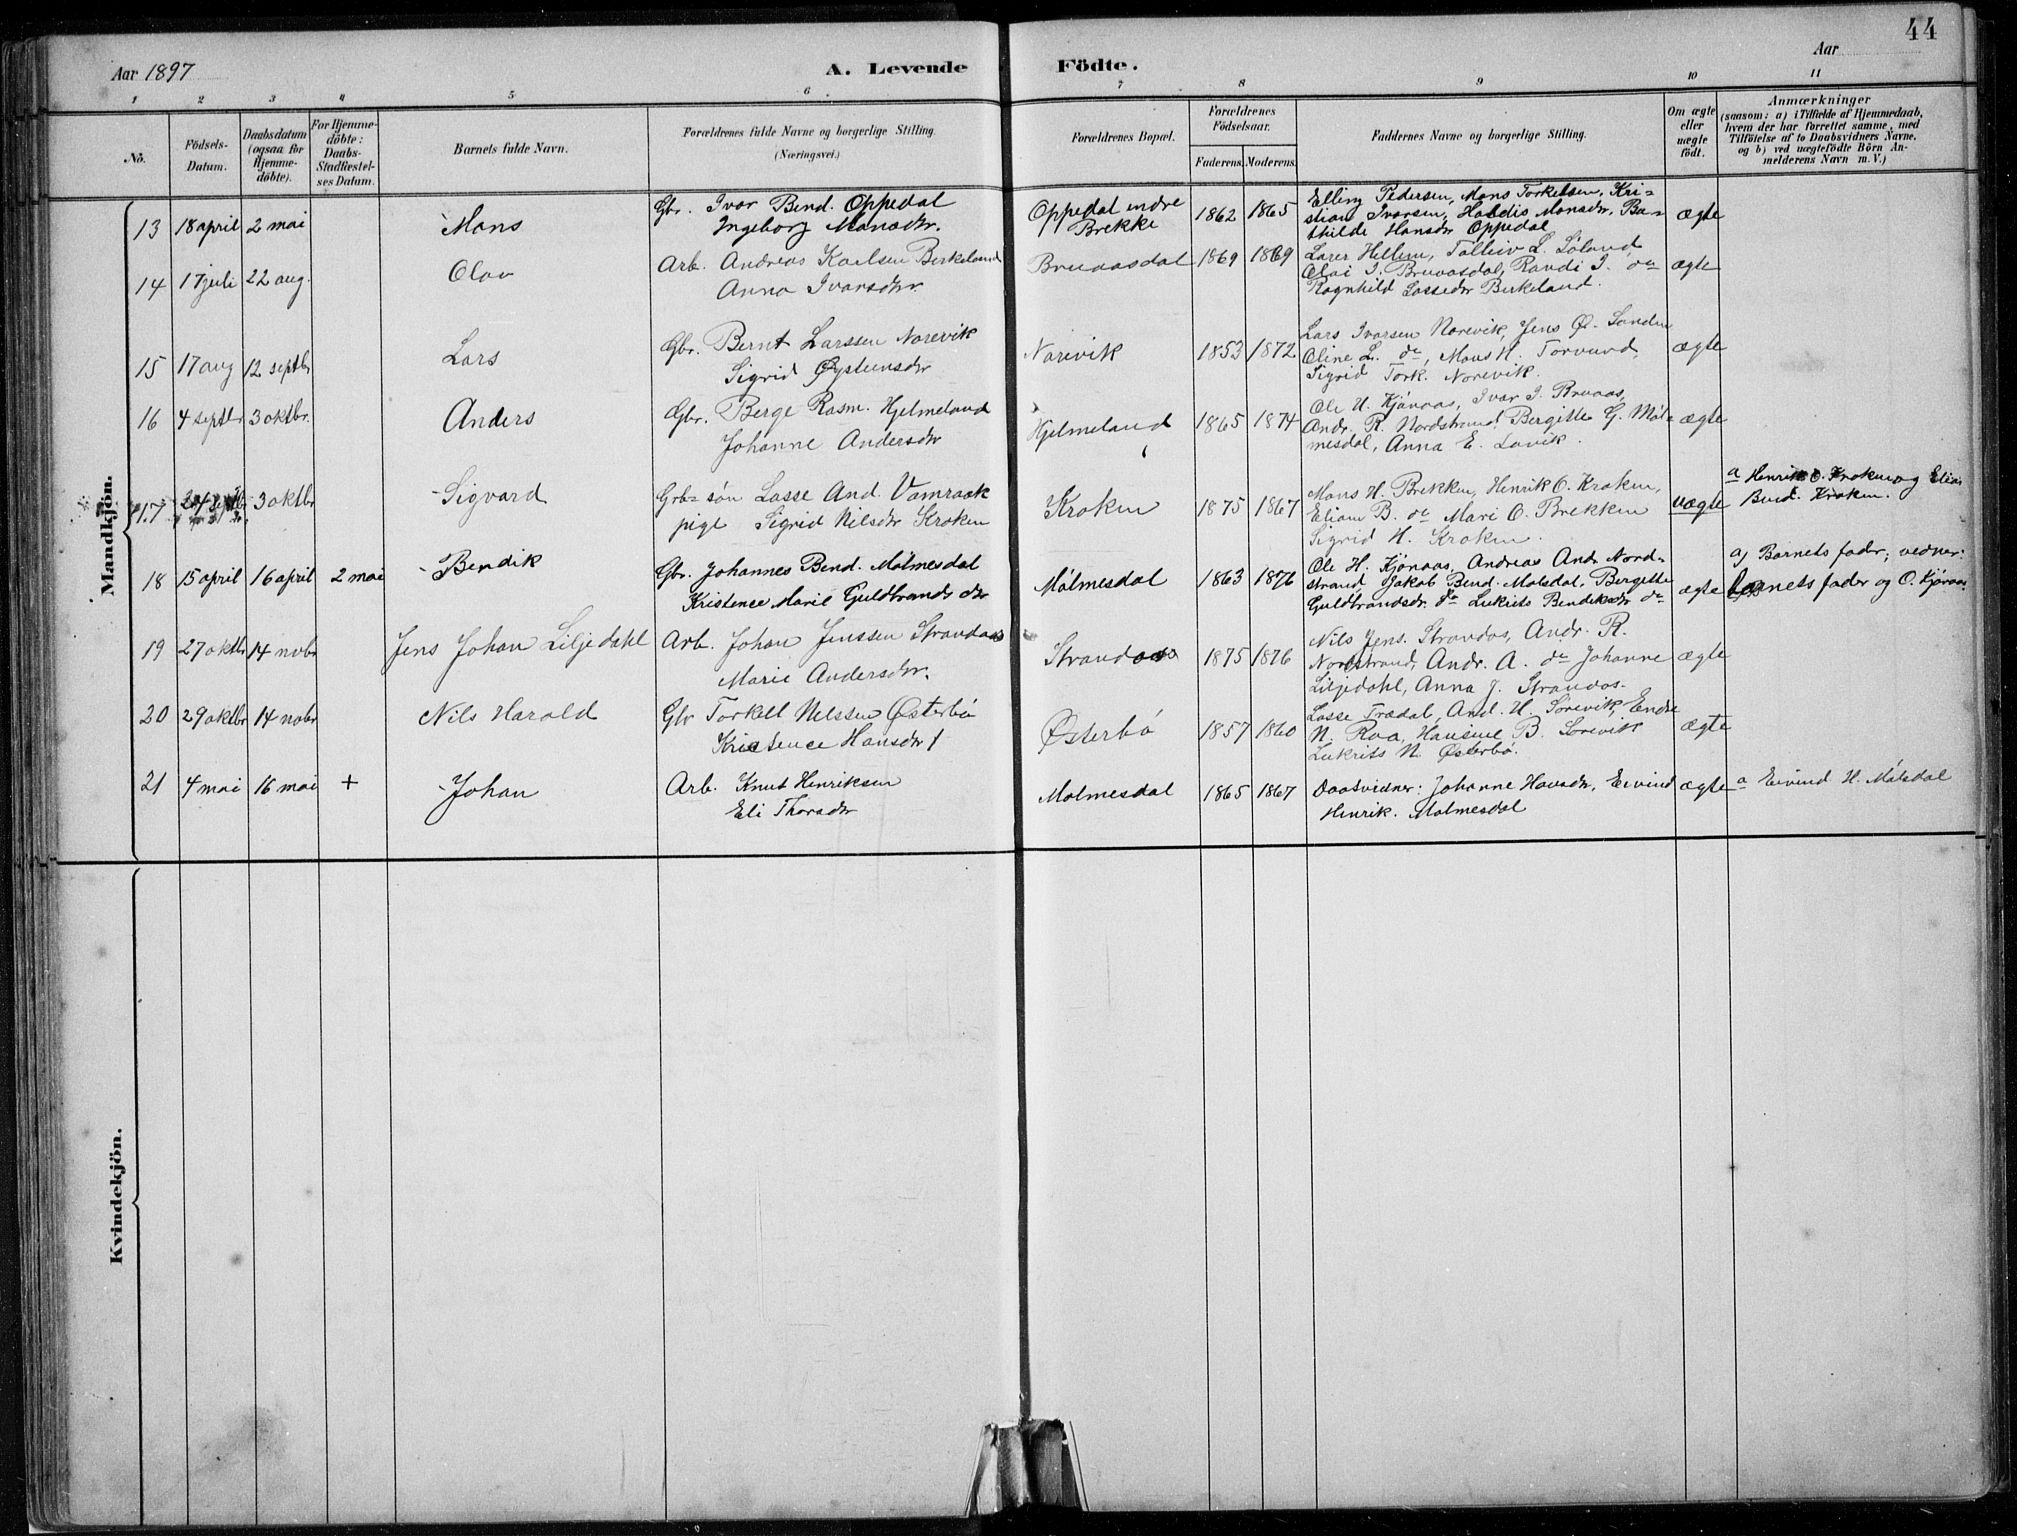 44
Aar 1897
A. Levende Födte.
Aar
1 2 3 4 5 6 7 8 9 10 11
No.
Födsels-
Datum.
Daabsdatum
(ogsaa for
Hjemme-
döbte).
For Hjemme-
döbte:
Daabs-
Stadfæstel-
ses Datum.
Barnets fulde Navn.
Forældrenes fulde Navne og borgerlige Stilling.
(Næringsvei.)
Forældrenes Bopæl.
Forældrenes
Födselsaar.
Faderens. Moderens.
Faddernes Navne og borgerlige Stilling.
Om ægte
eller
uægte
födt.
Anmærkninger
(saasom: a) i Tilfælde af Hjemmedaab,
hvem der har forrettet samme, med
Tilföielse af to Daabsvidners Navne.
og b) ved uægtefödte Börn An-
melderens Navn m. V.)
Mandkjön.
13 18 april 2 mai Mons
Gbr. Ivar Bend. Oppedal
Ingeborg Monsdtr.
Oppedal indre
Brekke
1862 1865
Elling Pedersen, Mons Torkelsen, Kri-
stian Ivarsen, Haldis Monsdr, Ba-
thilde Hansdr Oppedal
ægte
14 17 juli 22 aug. Olav
Arb. Andreas Karlsen Birkeland
Anna Ivarsdtr.
Bruaasdal 1869 1869
Lærer Hellem, Tolleiv L. Söland,
Olai I. Bruaasdal, Randi I. do
Ragnhild Lassedr Birkeland.
ægte
15 17 aug 12 septbr Lars
Gbr. Bernt Larssen Norevik
Sigrid Øysteinsdtr
Norevik 1853 1872
Lars Ivarsen Norevik, Jens Ø. Sanden
Oline L. do, Mons N. Torvund,
Sigrid Tork. Norevik.
ægte
16 4 septbr 3 oktbr. Anders
Gbr. Berge Rasm. Hjelmeland
Johanne Andersdtr
Hjelmeland 1865 1874
Ole H. Kjönaas, Ivar I. Bruaas,
Andr. R. Nordstrand, Bergitte G. Möl-
mesdal, Anna E. Lavik.
ægte
17 3 oktbr Sigvard
Grbr sön Lasse And. Vamraak
pige Sigrid Nilsdtr Kroken
Kroken 1875 1867
Mons H. Brekken, Henrik O. Kroken,
Eliam B. do Mari O. Brekken
Sigrid H. Kroken.
uægte
a Henrik O. Kroken og Elias
Bend. Kroken.
18 15 april 16 april 2 mai Bendik
Gbr. Johannes Bend. Mölmesdal
Kristence Marie Guldbrandsdtr
Mölmesdal 1863 1876
Ole H. Kjönaas, Andreas And. Nord-
strand Jakob Bend. Molsdal, Bergitte
Guldbrandsdr. do Lukrits Bendiksdr do
ægte
a) Barnets fader; vidner:
barnets fader og O. Kjönaas.
19 27 oktbr 14 nobr Jens Johan Liljedahl
Arb. Johan Jenssen Strandaas
Marie Andersdtr.
Strandaas 1875 1876
Nils Jens. Strandos, Andr. R.
Nordstrand, Andr. A. do Johanne
Liljedahl, Anna J. Strandos.
ægte
20 29 oktbr 14 nobr Nils Harald
Gbr Torkell Nilssen Østerbö
Kristence Hansdtr
Østerbö 1857 1860
Lasse Trædal, And. H. Sörevik, Endre
N. Roa, Hansine B. Sörevik
Lukrits N. Østerbö.
ægte
21 4 mai 16 mai + Johan
Arb. Knut Henriksen
Eli Thorsdtr
Molmesdal 1865 1867
Daabsvidner: Johanne Hansdr, Eivind
Henrik. Molmesdal
ægte
a Eivind H. Mölsdal
Kvindekjön.